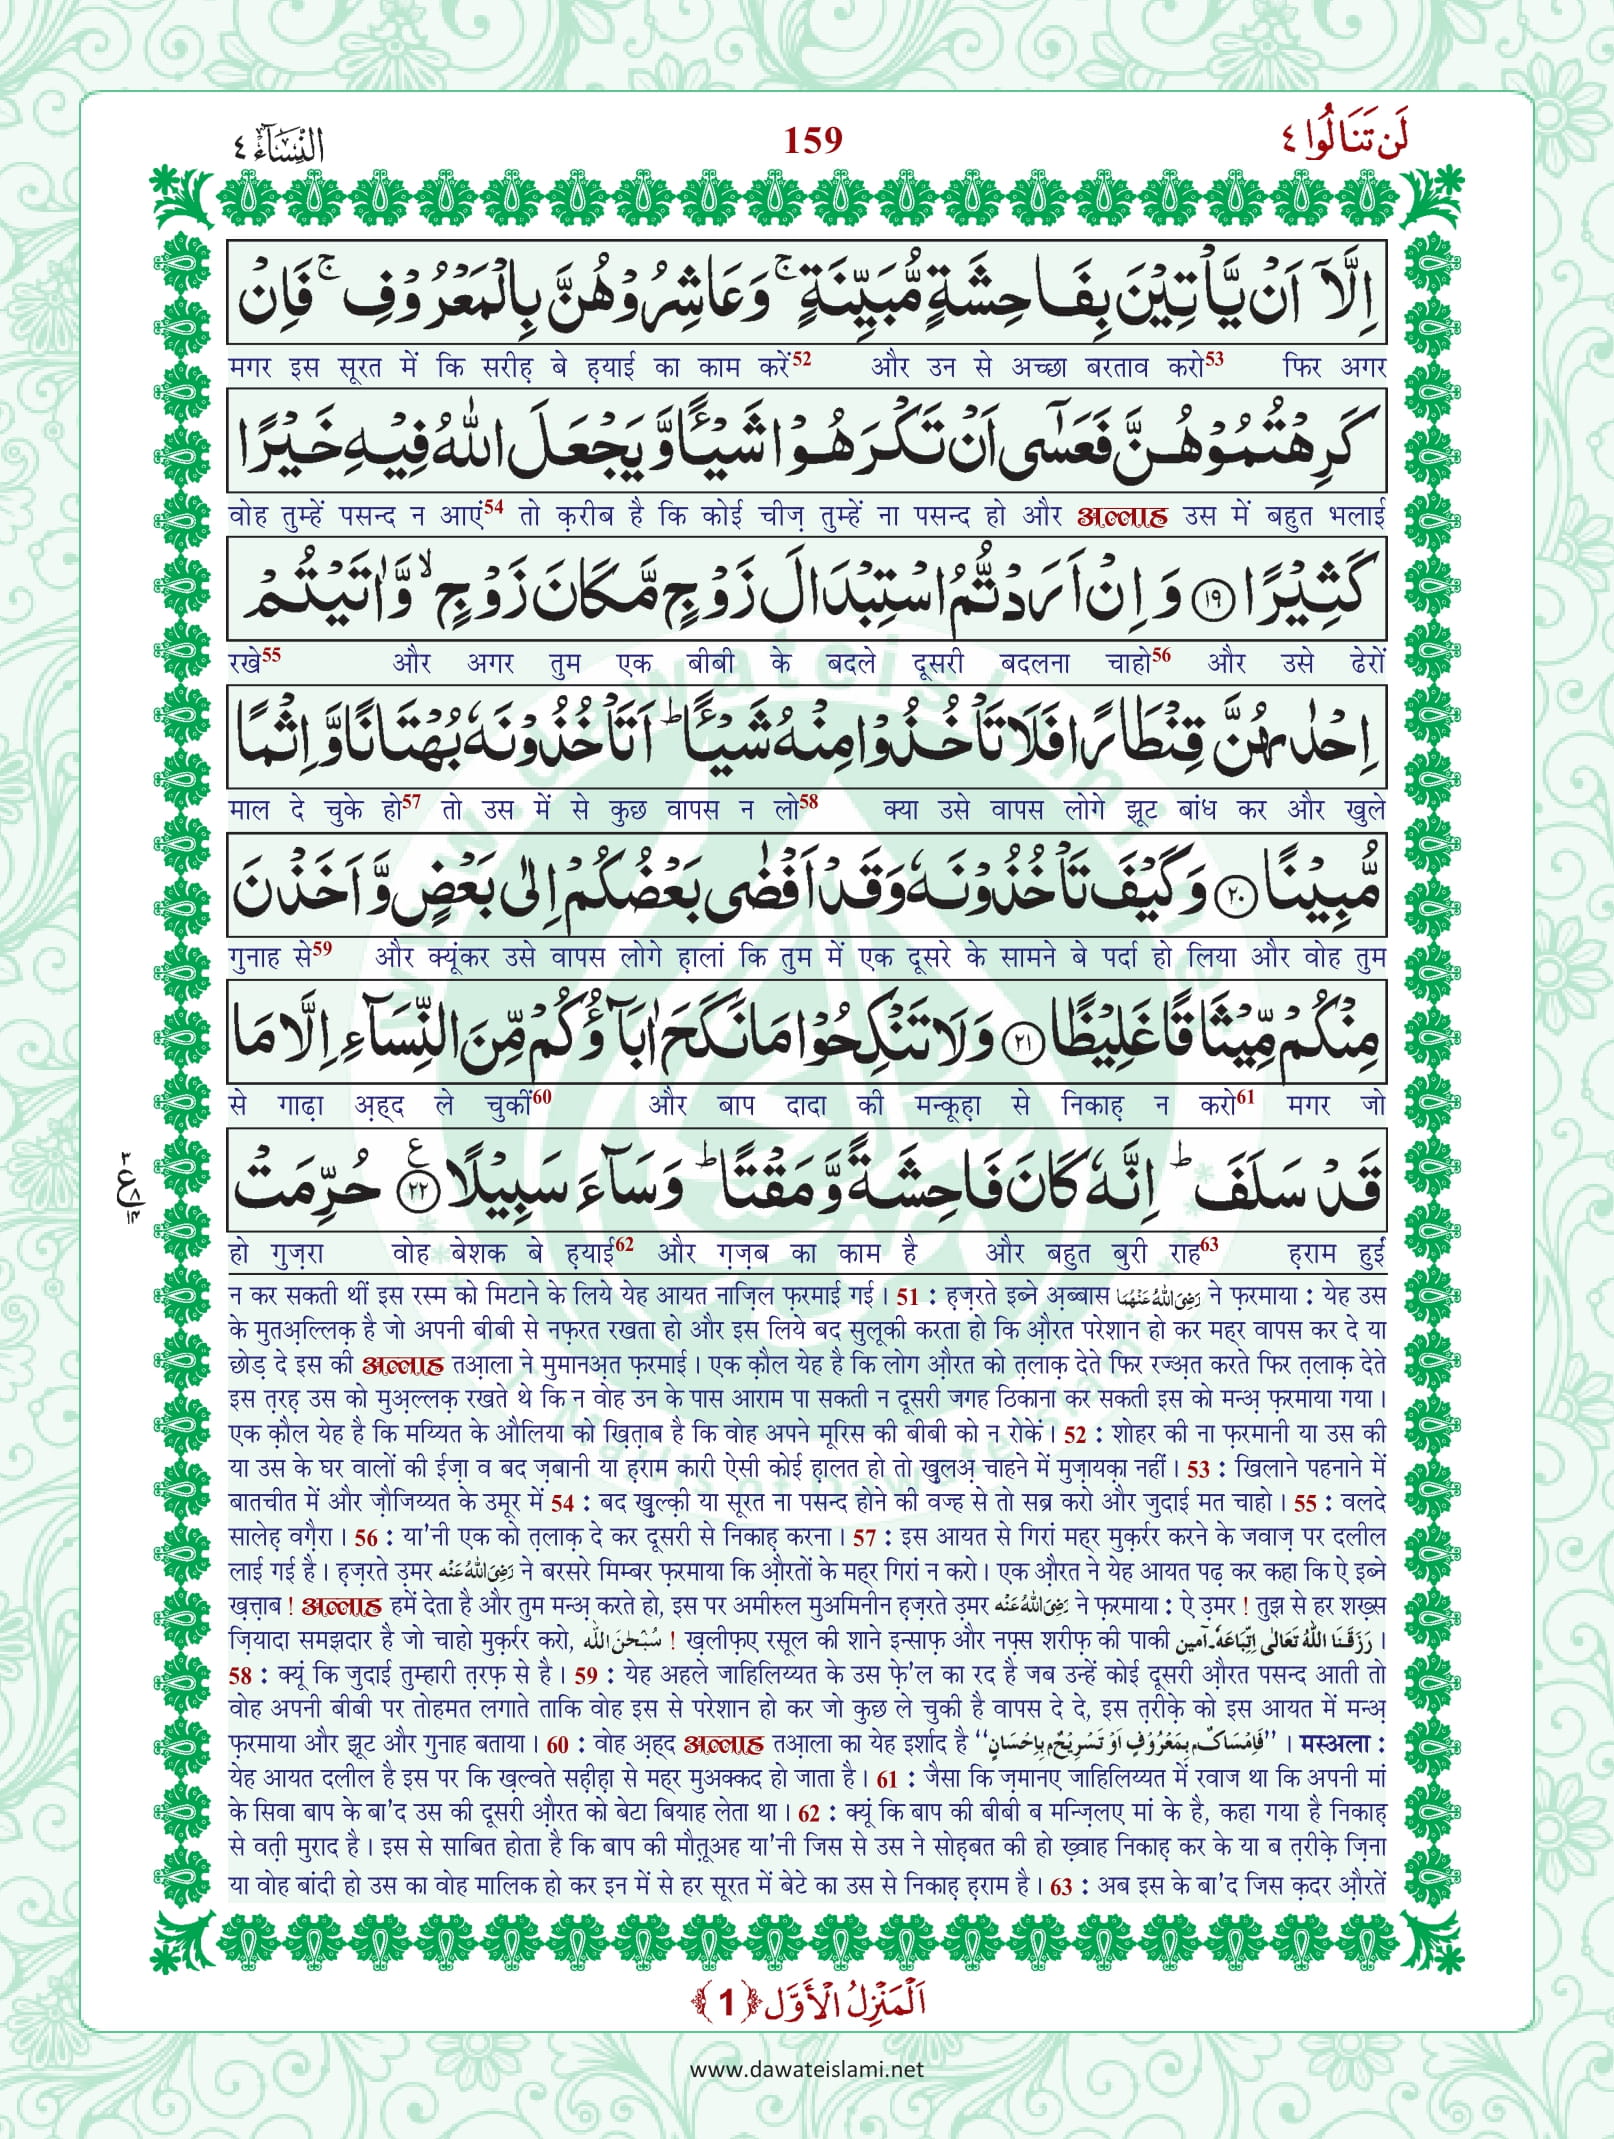 النِّسَآء ٤
159
لَنْ تَنَالُوا ٤
اِلَّاۤ اَنْ یَّاْتِیْنَ بِفَاحِشَةٍ مُّبَیِّنَةٍ ۚ وَعَاشِرُوْهُنَّ بِالْمَعْرُوْفِ ۚ فَاِنْ
मगर इस सूरत में कि सरीह़ बे ह़याई का काम करें52 और उन से अच्छा बरताव करो53 फिर अगर
كَرِهْتُمُوْهُنَّ فَعَسٰۤی اَنْ تَكْرَهُوْا شَیْــٴًـا وَّ یَجْعَلَ اللّٰهُ فِیْهِ خَیْرًا
वोह तुम्हें पसन्द न आएं54 तो क़रीब है कि कोई चीज़ तुम्हें ना पसन्द हो और अल्लाह उस में बहुत भलाई
كَثِیْرًا ﴿۱۹﴾ وَ اِنْ اَرَدْتُّمُ اسْتِبْدَالَ زَوْجٍ مَّكَانَ زَوْجٍ ۙ وَّ اٰتَیْتُمْ
रखे55 और अगर तुम एक बीबी के बदले दूसरी बदलना चाहो56 और उसे ढेरों
اِحْدٰىهُنَّ قِنْطَارًا فَلَا تَاْخُذُوْا مِنْهُ شَیْــٴًـا ؕ اَتَاْخُذُوْنَهٗ بُهْتَانًا وَّ اِثْمًا
माल दे चुके हो57 तो उस में से कुछ वापस न लो58 क्या उसे वापस लोगे झूट बांध कर और खुले
مُّبِیْنًا ﴿۲۰﴾ وَ كَیْفَ تَاْخُذُوْنَهٗ وَ قَدْ اَفْضٰی بَعْضُكُمْ اِلٰی بَعْضٍ وَّ اَخَذْنَ
गुनाह से59 और क्यूंकर उसे वापस लोगे ह़ालां कि तुम में एक दूसरे के सामने बे पर्दा हो लिया और वोह तुम
مِنْكُمْ مِّیْثَاقًا غَلِیْظًا ﴿۲۱﴾ وَ لَا تَنْكِحُوْا مَا نَكَحَ اٰبَآؤُكُمْ مِّنَ النِّسَآءِ اِلَّا مَا
से गाढ़ा अ़ह्द ले चुकीं60 और बाप दादा की मन्कूह़ा से निकाह़ न करो61 मगर जो
قَدْ سَلَفَ ؕ اِنَّهٗ كَانَ فَاحِشَةً وَّ مَقْتًا ؕ وَ سَآءَ سَبِیْلًا ﴿۲۲﴾ ع حُرِّمَتْ
हो गुज़रा वोह बेशक बे ह़याई62 और ग़ज़ब का काम है और बहुत बुरी राह63 ह़राम हुई
न कर सकती थीं इस रस्म को मिटाने के लिये येह आयत नाज़िल फ़रमाई गई। 51 : ह़ज़रते इब्ने अ़ब्बास رَضِیَ اللهُ عَنْهُمَا ने फ़रमाया : येह उस
के मुतअ़ल्लिक़ है जो अपनी बीबी से नफ़रत रखता हो और इस लिये बद सुलूकी करता हो कि औ़रत परेशान हो कर महर वापस कर दे या
छोड़ दे इस की अल्लाह तआ़ला ने मुमानअ़त फ़रमाई। एक क़ौल येह है कि लोग औ़रत को त़लाक़ देते फिर रज्अ़त करते फिर त़लाक़ देते
इस त़रह़ उस को मुअ़ल्लक़ रखते थे कि न वोह उन के पास आराम पा सकती न दूसरी जगह ठिकाना कर सकती इस को मन्अ़ फ़रमाया गया।
एक क़ौल येह है कि मय्यित के औलिया को ख़ित़ाब है कि वोह अपने मूरिस की बीबी को न रोकें। 52 : शोहर की ना फ़रमानी या उस की
या उस के घर वालों की ईज़ा व बद ज़बानी या ह़राम कारी ऐसी कोई ह़ालत हो तो खुलअ़ चाहने में मुज़ायक़ा नहीं। 53 : खिलाने पहनाने में
बातचीत में और ज़ौजिय्यत के उमूर में 54 : बद खुल्क़ी या सूरत ना पसन्द होने की वज्ह से तो सब्र करो और जुदाई मत चाहो। 55 : वलदे
सालेह़ वग़ैरा। 56 : या'नी एक को त़लाक़ दे कर दूसरी से निकाह़ करना। 57 : इस आयत से गिरां महर मुक़र्रर करने के जवाज़ पर दलील
लाई गई है। ह़ज़रते उ़मर رَضِیَ اللهُ عَنْه ने बरसरे मिम्बर फ़रमाया कि औ़रतों के मह्र गिरां न करो। एक औ़रत ने येह आयत पढ़ कर कहा कि ऐ इब्ने
ख़त़्त़ाब ! अल्लाह हमें देता है और तुम मन्अ़ करते हो, इस पर अमीरुल मुअमिनीन ह़ज़रते उ़मर رَضِیَ اللهُ عَنْه ने फ़रमाया : ऐ उ़मर ! तुझ से हर शख़्स
ज़ियादा समझदार है जो चाहो मुक़र्रर करो, سُبْحٰنَ اللّٰه ! ख़लीफ़ए रसूल की शाने इन्साफ़ और नफ़्स शरीफ़ की पाकी رَزَقَنَا اللّٰهُ تَعَالٰی اِتِّبَاعَهٗ۔آمین ।
58 : क्यूं कि जुदाई तुम्हारी त़रफ़ से है। 59 : येह अहले जाहिलिय्यत के उस फ़े'ल का रद है जब उन्हें कोई दूसरी औ़रत पसन्द आती तो
वोह अपनी बीबी पर तोहमत लगाते ताकि वोह इस से परेशान हो कर जो कुछ ले चुकी है वापस दे दे, इस त़रीक़े को इस आयत में मन्अ़
फ़रमाया और झूट और गुनाह बताया। 60 : वोह अ़ह्द अल्लाह तआ़ला का येह इर्शाद है ‘‘فَاِمْسَاكٌۢ بِمَعْرُوْفٍ اَوْ تَسْرِیْحٌۢ بِاِحْسَانٍ’’ । मस्अला :
येह आयत दलील है इस पर कि ख़ल्वते सह़ीह़ा से मह्र मुअक्कद हो जाता है। 61 : जैसा कि ज़मानए जाहिलिय्यत में रवाज था कि अपनी मां
के सिवा बाप के बा'द उस की दूसरी औ़रत को बेटा बियाह लेता था। 62 : क्यूं कि बाप की बीबी ब मन्ज़िलए मां के है, कहा गया है निकाह़
से वत़ी मुराद है। इस से साबित होता है कि बाप की मौत़ूअह या'नी जिस से उस ने सोह़बत की हो ख़्वाह निकाह़ कर के या ब त़रीक़े ज़िना
या वोह बांदी हो उस का वोह मालिक हो कर इन में से हर सूरत में बेटे का उस से निकाह़ ह़राम है। 63 : अब इस के बा'द जिस क़दर औ़रतें
اَلْمَنْزِلُ الْاَوَّل ﴿1﴾
www.dawateislami.net